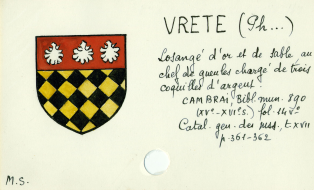 VRETE (Ph...)
Losangé d'or et de sable au
chef de gueules chargé de trois
coquilles d'argent.
CAMBRAI, Bibl. mun. 890
(XVe-XVIe s.) fol. 145v°
Catal. gen. des mss, t. XVII
p. 361-362
M.S.